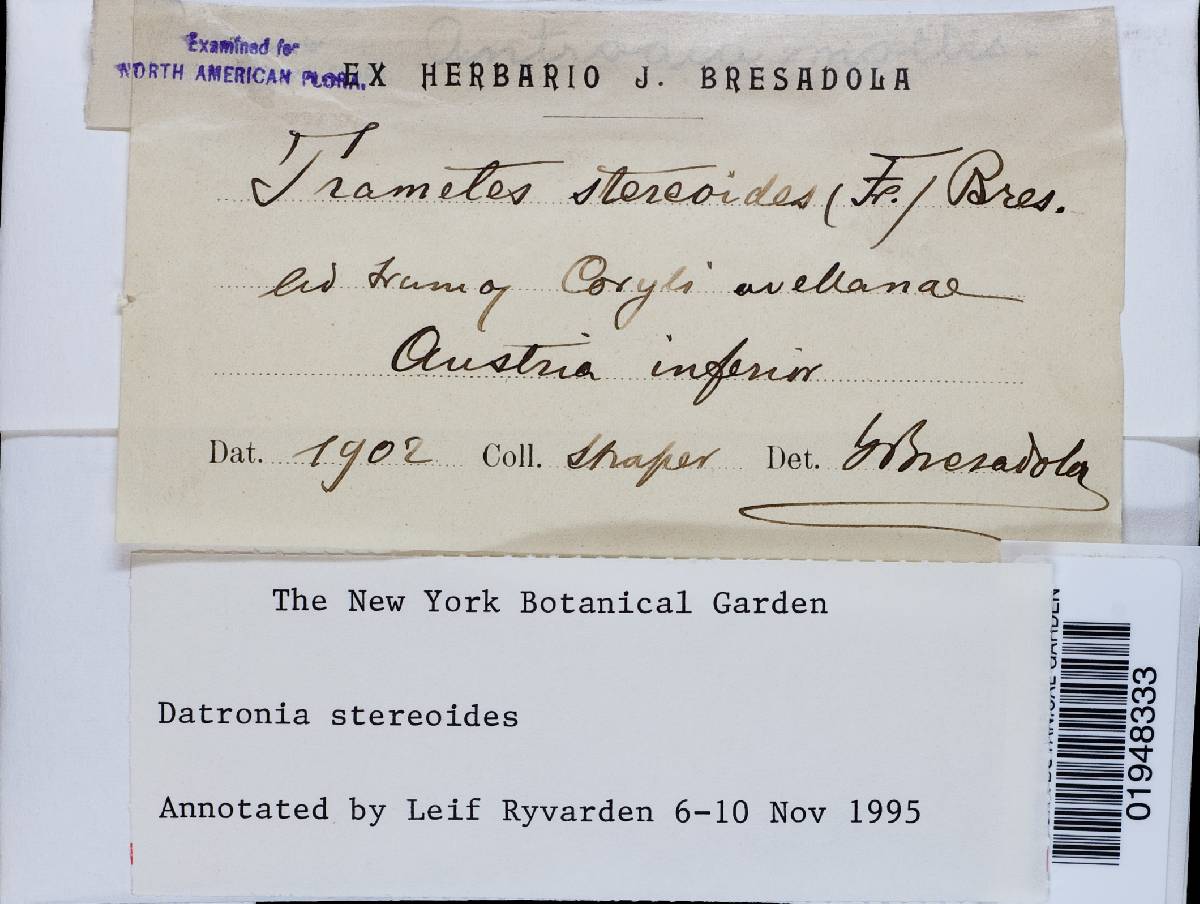 Examined for
NORTH AMERICAN FLORA.
EX HERBARIO J. BRESADOLA
Trametes stereoides (Fr.) Bres.
ad Coryli avellanae
Austria inferior
Dat. 1902 Coll. Det. Bresadola
The New York Botanical Garden
Datronia stereoides
Annotated by Leif Ryvarden 6-10 Nov 1995
01948333